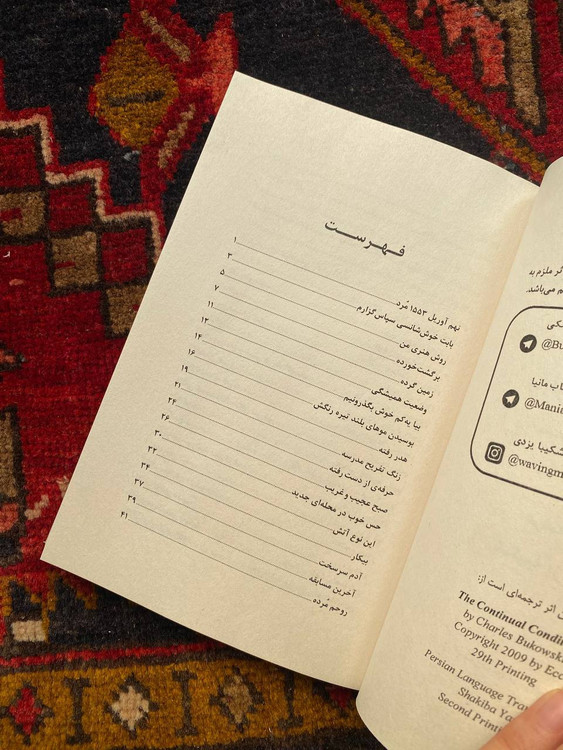 فهرست
نهم آوریل ۱۵۵۳ مُرد ۱
بابت خوش‌شانسی سپاس‌گزارم ۳
روش هنری من ۵
برگشت‌خورده ۷
زمین گرده ۱۱
وضعیت همیشگی ۱۲
بیا یه‌کم خوش بگذرونیم ۱۴
بوسیدن موهای بلند تیره رنگش ۱۶
هدر رفته ۱۹
زنگ تفریح مدرسه ۲۱
حرفه‌ی از دست رفته ۲۴
صبح عجیب و غریب ۲۶
حس خوب در محله‌ای جدید ۳۰
این نوع آتش ۳۲
بیکار ۳۴
آدم سرسخت ۳۷
آخرین مسابقه ۳۹
روحم مُرده ۴۱
گر ملزم به
م می‌باشد.
@Bu
اب مانیا
@Mania
شکیبا یزدی
@wavingm
اثر ترجمه‌ای است از:
The Continual Condi
by Charles Bukowsk
Copyright 2009 by Ecc
29th Printing
Persian Language Tran
Shakiba Ya
Second Printi